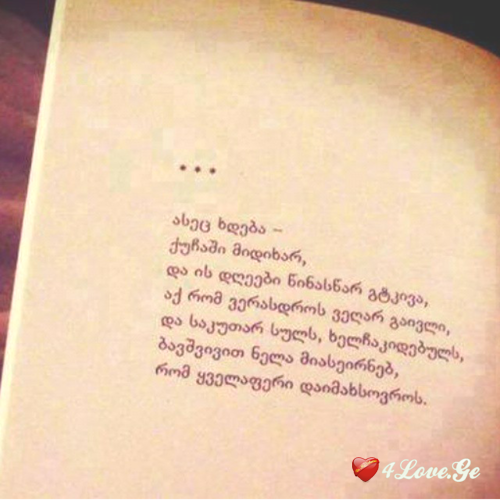 * * *
ასეც ხდება –
ქუჩაში მიდიხარ,
და ის დღეები წინასწარ გტკივა,
აქ რომ ვერასდროს ვეღარ გაივლი,
და საკუთარ სულს, ხელჩაკიდებულს,
ბავშვივით ნელა მიასეირნებ,
რომ ყველაფერი დაიმახსოვროს.
4Love.Ge